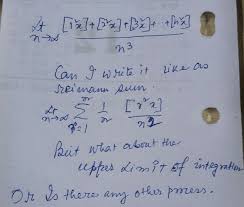 Lt n→∞ [1²x]+[2²x]+[3²x]+...+[n²x] / n³
Can I write it like as
reimann sum.
Lt n→∞ Σ r=1 n 1/n [r²x]/n2
But what about the
upper limit of integration
Or Is there any other process.